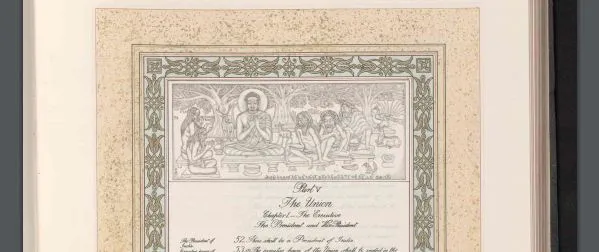 Part V
The Union
Chapter I.—The Executive
The President and Vice-President
The President of
India
52. There shall be a President of India
53. (1) The executive power of the Union shall be vested in the